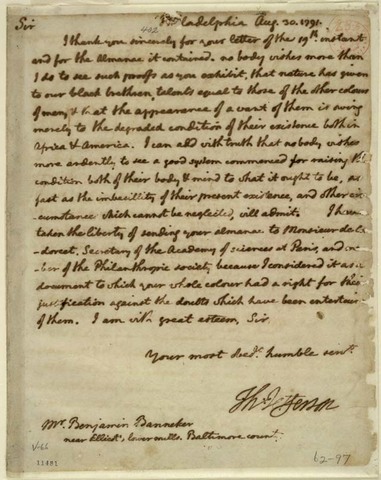 Sir Philadelphia Aug. 30. 1791.
402
I thank you sincerely for your letter of the 19th. instant
and for the Almanac it contained. no body wishes more than
I do to see such proofs as you exhibit, that nature has given
to our black brethren, talents equal to those of the other colours
of men, & that the appearance of a want of them is owing
merely to the degraded condition of their existence both in
Africa & America. I can add with truth that no body wishes
more ardently to see a good system commenced for raising the
condition both of their body & mind to what it ought to be, as
fast as the imbecillity of their present existence, and other cir-
cumstance which cannot be neglected, will admit. I have
taken the liberty of sending your almanac to Monsieur de Con-
dorcet, Secretary of the Academy of sciences at Paris, and mem-
ber of the Philanthropic society, because I considered it as a
document to which your whole colour had a right for their
justification against the doubts which have been entertained
of them. I am with great esteem, Sir
Your most obedt. humble servt.
Th Jefferson
Mr. Benjamin Banneker
near Ellicot's, lower mills. Baltimore county.
V-66
11481
62-97